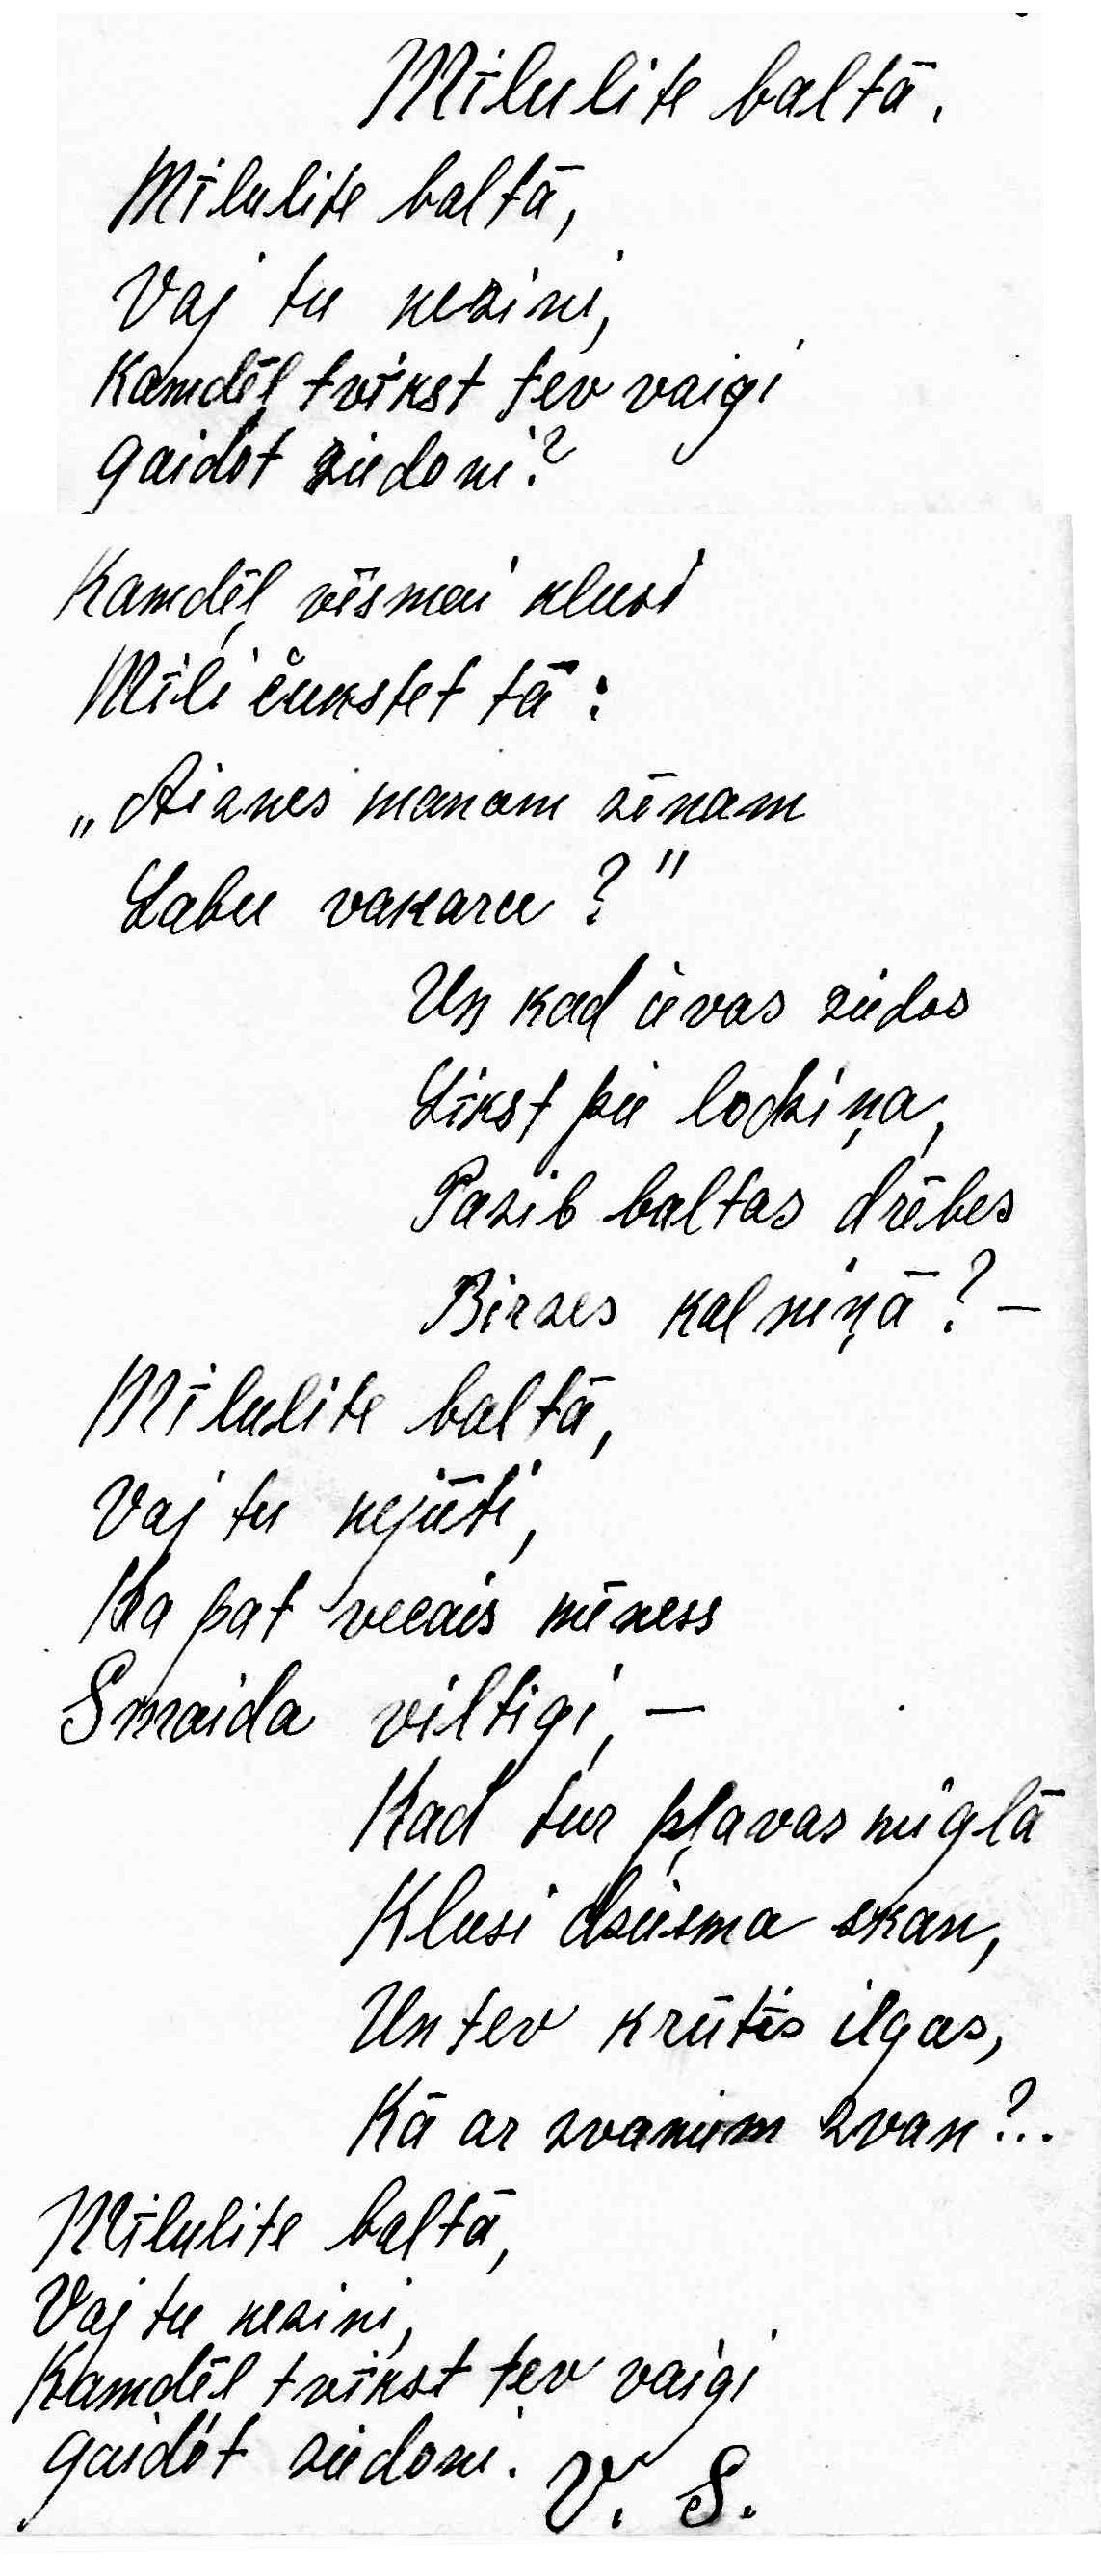 Mīlulīte baltā.
Mīlulite baltā,
Vaj tu nezini,
Kamdēļ tvīkst tev vaigi
gaidot ziedoni?
Kamdēļ vēsmai klusi
Mīli čukstet tā:
„Aiznes manam zēnam
Labu vakaru?"
Un kad ievas ziedos
Līkst pie lodziņa,
Pazib baltas drēbes
Birzes kalniņā? —
Mīlulite baltā,
Vaj tu nejūti,
Ka pat vecais mēness
Smaida viltigi, —
Kad tur pļavas miglā
Klusi dziesma skan,
Un tev krūtīs ilgas,
Kā ar zvaniem zvan?..
Mīlulite baltā,
Vaj tu nezini,
Kamdēl tvīkst tev vaigi
gaidot ziedoni.
V. S.